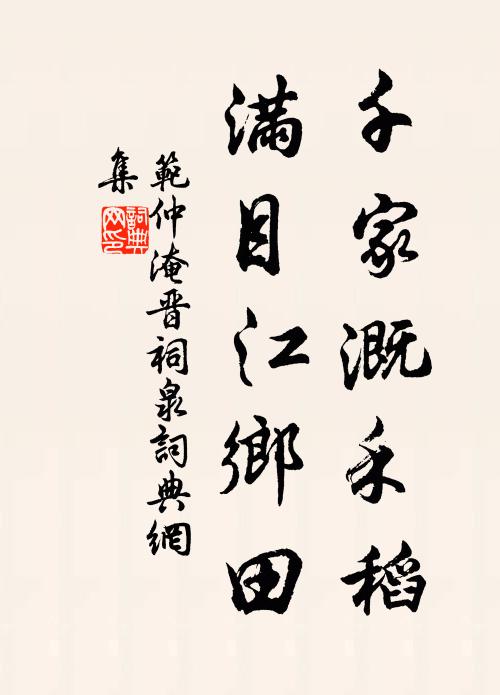 千家溉禾稻
滿目江鄉田
範仲淹晋祠泉詞典網
集
詞典网印